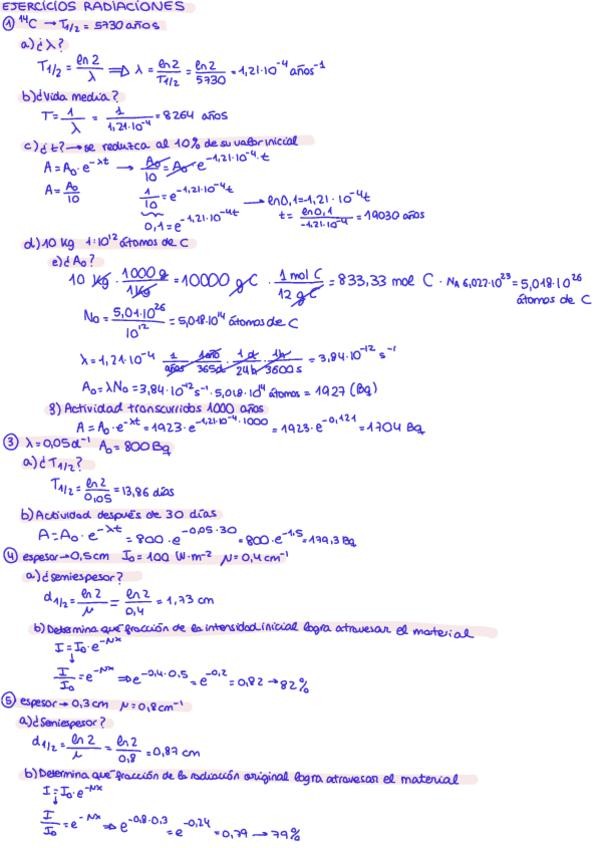 EJERCICIOS RADIACIONES
① ¹⁴C → T1/2 = 5730 años
a) ¿λ?
T1/2 = ln2/λ ⇒ λ = ln2/T1/2 = ln2/5730 = 1,21·10⁻⁴ años⁻¹
b) ¿Vida media?
T = 1/λ = 1/1,21·10⁻⁴ = 8264 años
c) ¿t? → se reduzca al 10% de su valor inicial
A = A₀·e^-λt → A₀/10 = A₀·e^-1,21·10⁻⁴·t
A = A₀/10
1/10 = e^-1,21·10⁻⁴t → ln0,1 = -1,21·10⁻⁴t
0,1 = e^-1,21·10⁻⁴t
t = ln0,1/-1,21·10⁻⁴ = 19030 años
d) 10 Kg 1:10¹² átomos de C
e) ¿A₀?
10 Kg · 1000 g/1 Kg = 10000 g C · 1 mol C/12 g C = 833,33 mol C · NA 6,022·10²³ = 5,018·10²⁶
átomos de C
N₀ = 5,01·10²⁶/10¹² = 5,018·10¹⁴ átomos de C
λ = 1,21·10⁻⁴ 1/años · 1año/365d · 1d/24h · 1h/3600s = 3,84·10⁻¹² s⁻¹
A₀ = λN₀ = 3,84·10⁻¹² s⁻¹ · 5,018·10¹⁴ átomos = 1927 (Bq)
g) Actividad transcurridos 1000 años
A = A₀·e^-λt = 1923·e^-1,21·10⁻⁴·1000 = 1923·e^-0,121 = 1704 Bq
③ λ = 0,05 d⁻¹ A₀ = 800 Bq
a) ¿T1/2?
T1/2 = ln2/0,05 = 13,86 días
b) Actividad después de 30 días
A = A₀·e^-λt = 800·e^-0,05·30 = 800·e^-1,5 = 179,3 Bq
④ espesor → 0,5cm I₀ = 100 W·m⁻² μ = 0,4 cm⁻¹
a) ¿semiespesor?
d1/2 = ln2/μ = ln2/0,4 = 1,73 cm
b) Determina qué fracción de la intensidad inicial logra atravesar el material
I = I₀·e^-μx
↓
I/I₀ = e^-μx ⇒ e^-0,4·0,5 = e^-0,2 = 0,82 → 82%
⑤ espesor → 0,3cm μ = 0,8cm⁻¹
a) ¿Semiespesor?
d1/2 = ln2/μ = ln2/0,8 = 0,87 cm
b) Determina qué fracción de la radiación original logra atravesar el material
I = I₀·e^-μx
↓
I/I₀ = e^-μx ⇒ e^-0,8·0,3 = e^-0,24 = 0,79 → 79%